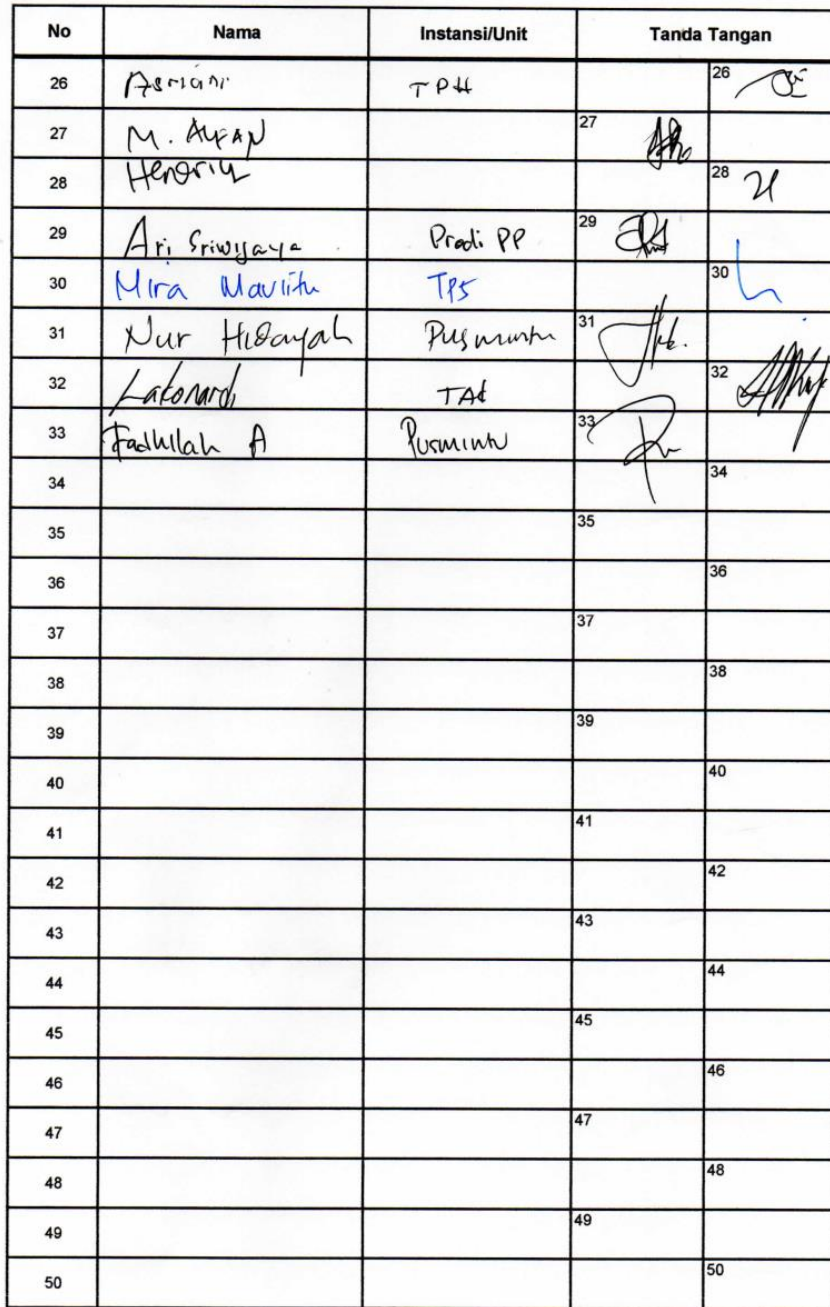 No Nama Instansi/Unit Tanda Tangan
26 Asriani TPH 26
27 M. ALFAN 27
28 Hendrik 28
29 Ari Sriwijaya Prodi PP 29
30 Mira Maulita TPS 30
31 Nur Hidayah Pusmintu 31
32 Lakonardi 32
33 Fadhilah A Pusmintu 33
34 34
35 35
36 36
37 37
38 38
39 39
40 40
41 41
42 42
43 43
44 44
45 45
46 46
47 47
48 48
49 49
50 50